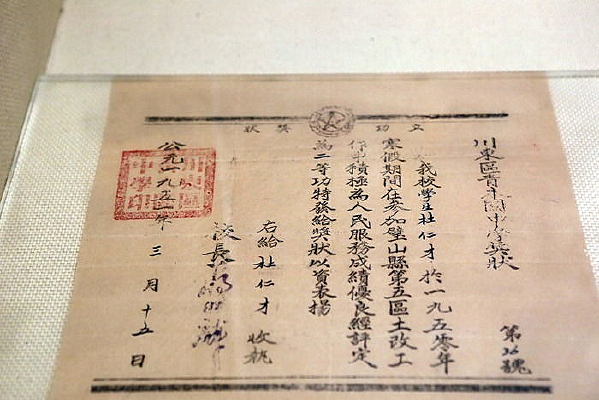 立功奖状
川東區青木關中學奖狀
第26號
我校學生杜仁才於一九五零年
寒假期間在參加璧山縣第五區土改工
作中積極為人民服務成績優良經評定
為二等功特發給奖狀以資表揚
右給杜仁才收執
校長
公元一九五一年三月十五日